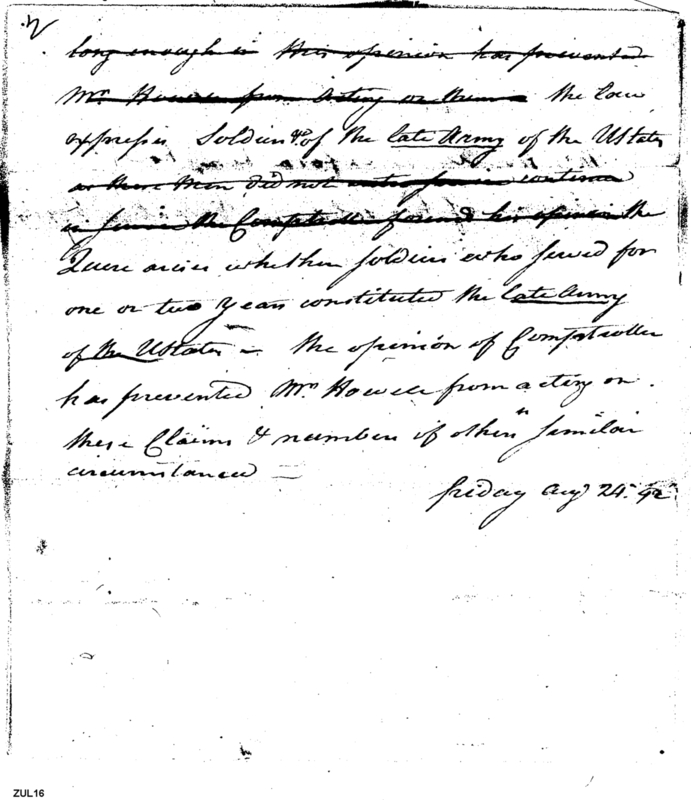 2
long enough in this opinion has prevented
Mr. Howell from acting on them the law
expresses Soldiers &c of the late Army of the UStates
as these men did not continue
in service the Comptroller formed his opinion the
Quere arises whether soldiers who served for
one or two years constituted the late Army
of the UStates – the opinion of Comptroller
has prevented Mr. Howell from acting on
these Claims & numbers of others similar
circumstanced —
friday Augt 24. 92
ZUL16